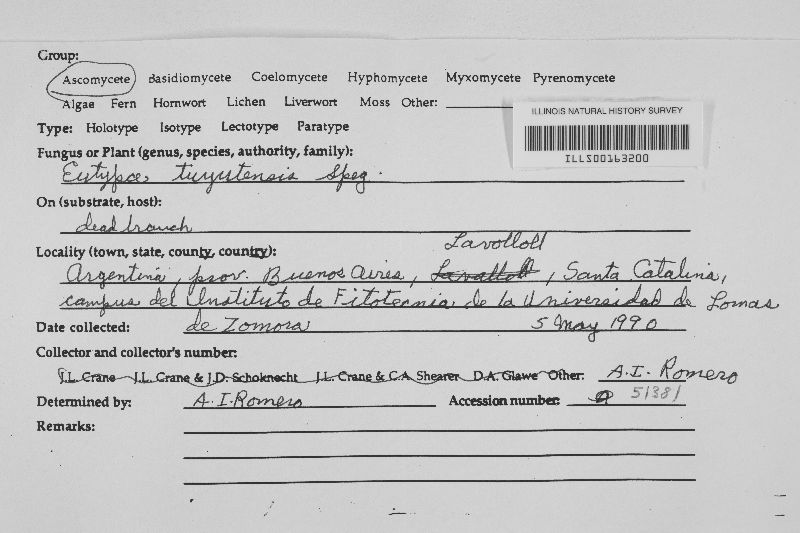 Group:
Ascomycete Basidiomycete Coelomycete Hyphomycete Myxomycete Pyrenomycete
Algae Fern Hornwort Lichen Liverwort Moss Other:
ILLINOIS NATURAL HISTORY SURVEY
ILLS00163200
Type: Holotype Isotype Lectotype Paratype
Fungus or Plant (genus, species, authority, family):
Eutypa tuyutensis Speg.
On (substrate, host):
dead branch
Locality (town, state, county, country):
Lavolloll
Argentina, prov. Buenos Aires, , Santa Catalina,
campus del Instituto de Fitotecnia de la Universidad de Lomas
Date collected: de Zomora 5 May 1990
Collector and collector's number:
J.L. Crane J.L. Crane & J.D. Schoknecht J.L. Crane & C.A. Shearer D.A. Glawe Other: A.I. Romero
Determined by: A.I. Romero Accession number: 51381
Remarks: